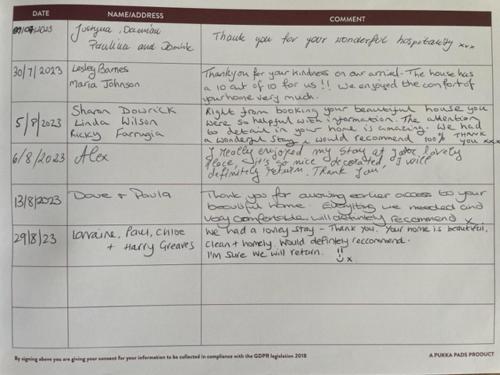 DATE NAME/ADDRESS COMMENT
Justyna, Damian
Paulina and Dominik
Thank you for your wonderful hospitality xxx
30/7/2023 Lesley Barnes
Maria Johnson
Thankyou for your kindness on our arrival. The house has
a 10 out of 10 for us!! We enjoyed the comfort of
your home very much.
5/8/2023 Sharon Dowrick
Linda Wilson
Ricky Farrugia
Right from booking your beautiful house you
were so helpful with information. The attention
to detail in your home is amazing. We had
a wonderful stay & would recommend 100% THANK
YOU xxx
6/8/2023 Alex
I really enjoyed my stay at your lovely
place, it's so nice decorated, I will
definitely return. Thank you,
13/8/2023 Dave + Paula
Thank you for allowing earlier access to your
beautiful home. Everything we needed and
very comfortable. Will definitely recommend x
29/8/23 Lorraine, Paul, Chloe
+ Harry Greaves
We had a lovely stay - Thank you. Your home is beautiful,
clean + homely. Would definitely reccommend.
I'm sure we will return. x
By signing above you are giving your consent for your information to be collected in compliance with the GDPR legislation 2018
A PUKKA PADS PRODUCT